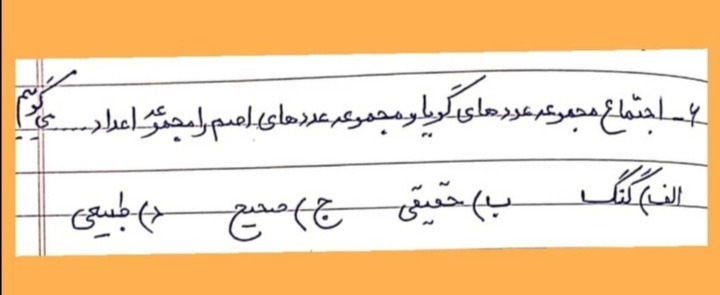 ۶- اجتماع مجموعه عددهای گویا و مجموعه عددهای اصم را مجموعه اعداد ..... می گوییم
الف) گنگ ب) حقیقی ج) صحیح د) طبیعی